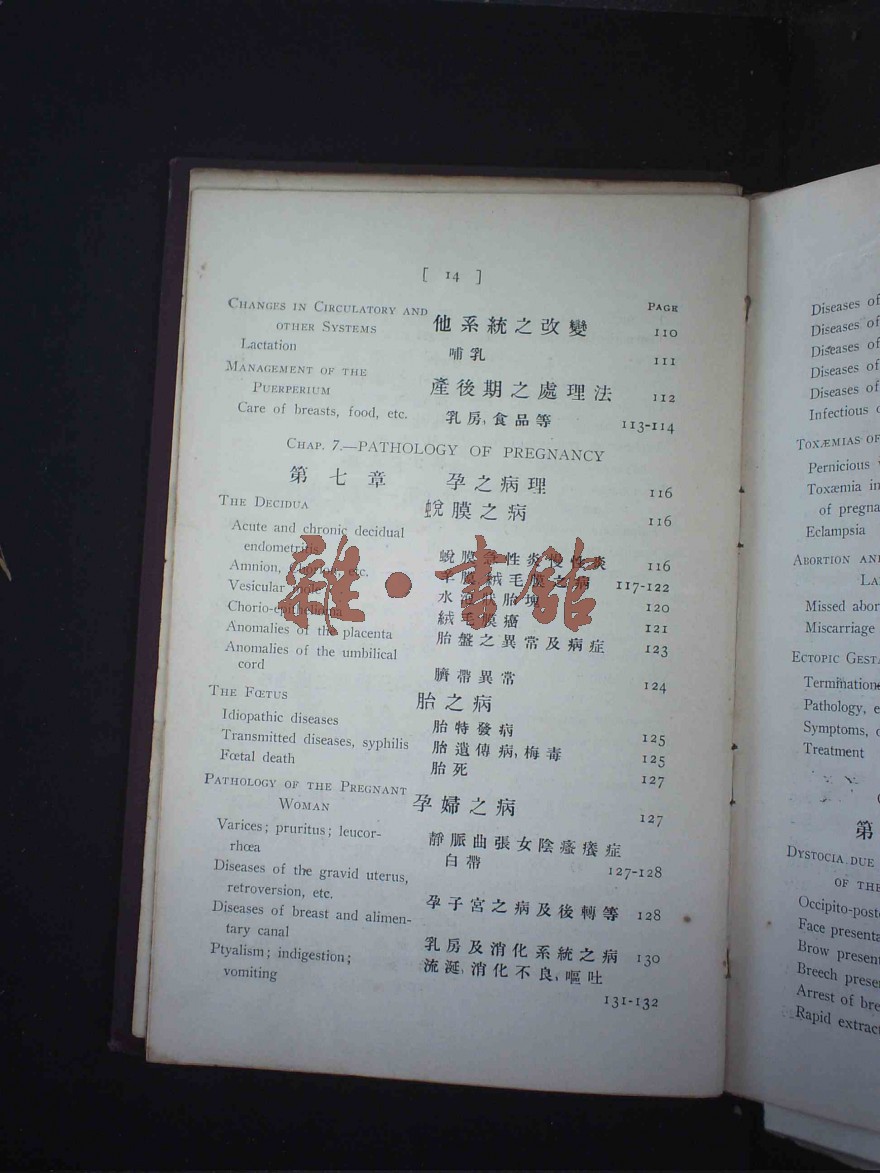 [ 14 ]
PAGE
CHANGES IN CIRCULATORY AND
OTHER SYSTEMS 他系統之改變 110
Lactation 哺乳 111
MANAGEMENT OF THE
PUERPERIUM 產後期之處理法 112
Care of breasts, food, etc. 乳房, 食品等 113-114
CHAP. 7.—PATHOLOGY OF PREGNANCY
第七章 孕之病理 116
THE DECIDUA 蛻膜之病 116
Acute and chronic decidual
endometritis 蛻膜急性炎慢性炎 116
Amnion, chorion, etc. 羊膜, 絨毛膜之病 117-122
Vesicular mole 水泡狀胎塊 120
Chorio-epithelioma 絨毛膜癌 121
Anomalies of the placenta 胎盤之異常及病症 123
Anomalies of the umbilical
cord 臍帶異常 124
THE FŒTUS 胎之病
Idiopathic diseases 胎特發病 125
Transmitted diseases, syphilis 胎遺傳病, 梅毒 125
Fœtal death 胎死 127
PATHOLOGY OF THE PREGNANT
WOMAN 孕婦之病 127
Varices; pruritus; leucor-
rhœa 靜脈曲張女陰瘙癢症
白帶 127-128
Diseases of the gravid uterus,
retroversion, etc. 孕子宮之病及後轉等 128
Diseases of breast and alimen-
tary canal 乳房及消化系統之病 130
Ptyalism; indigestion;
vomiting 流涎, 消化不良, 嘔吐
131-132
雜·書館
Diseases of
Diseases of
Diseases of
Diseases of
Diseases of
Infectious
TOXÆMIAS OF
Pernicious
Toxæmia in
of pregna
Eclampsia
ABORTION AND
LA
Missed abor
Miscarriage
ECTOPIC GESTA
Termination
Pathology, e
Symptoms, 
Treatment
第
DYSTOCIA DUE
OF THE
Occipito-poste
Face presenta
Brow present
Breech prese
Arrest of bre
Rapid extract